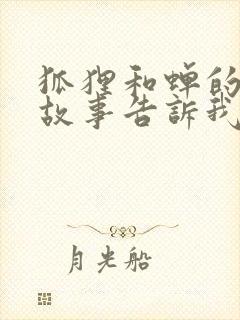 狐狸和蝉的
故事告訴我
月光船